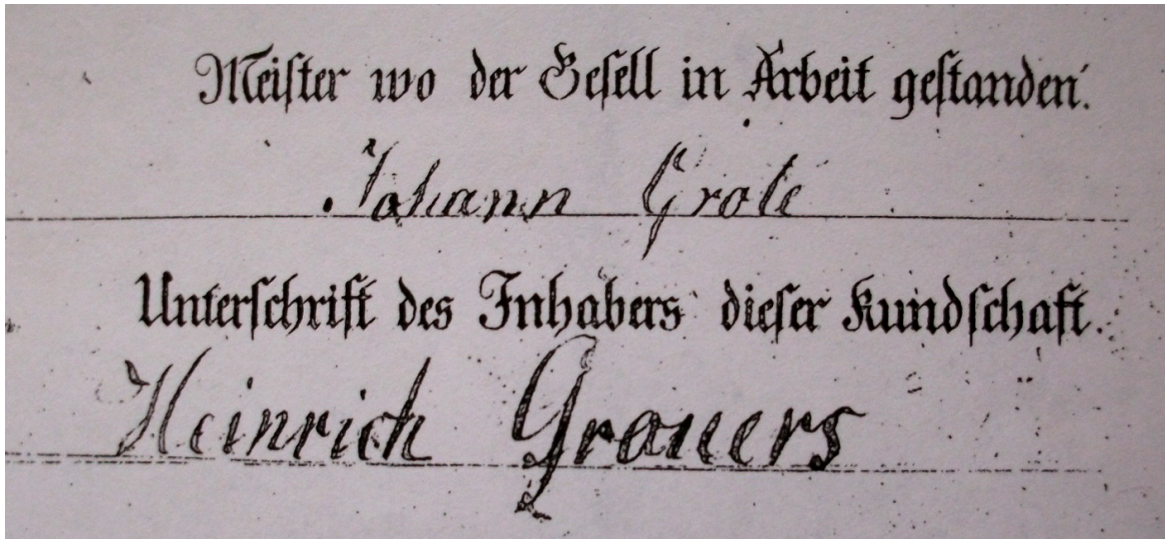 Meister wo der Gesell in Arbeit gestanden.
Johann Grote
Unterschrift des Inhabers dieser Kundschaft.
Heinrich Grauers